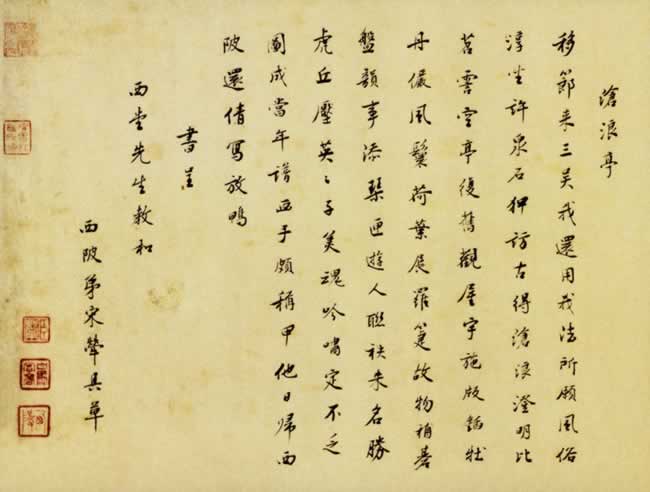 滄浪亭
移節来三吳我還用我法所願風俗
淳坐許泉石狎訪古得滄浪澄明比
苕霅空亭復舊觀屋宇施版鍤牡
丹儼風鬟荷葉展羅箑故物補碁
盤韻事添琹匣遊人聯袂来名勝
虎丘壓英〻子美魂吟嘯定不乏
圖成當年譜五字頗稱甲他日歸西
陂還倩寫放鴨
書呈
西堂先生教和
西陂弟宋犖具草